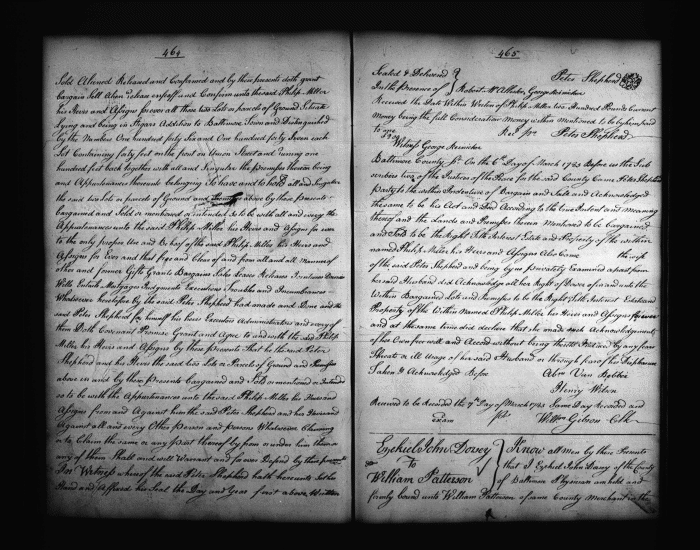 464
Sold Aliened Released and Confirmed and by these presents doth grant
bargain Sell Alien Release and Confirm unto the said Philip Miller
his Heirs and Assigns forever all those two Lots or parcels of Ground Situate
lying and being in Addition to Baltimore Town and Distinguished
by the Numbers One hundred forty Six and One hundred forty Seven each
Lot Containing forty feet on the front on Union Street and runing one
hundred feet back together with all and Singular the premises thereon being
and Appurtenances thereunto belonging To have and to hold all and Singular
the said two lots or parcels of Ground and above by these presents
bargained and Sold or mentioned or intended so to be with all and every the
Appurtenances unto the said Philip Miller his Heirs and Assigns for ever
to the only proper Use and Behoof of the said Philip Miller his Heirs and
Assigns for Ever and that free and Clear of and from all and all Manner of
other and former Gifts Grants Bargains Sales Leases Releases Jointures Dowers
Wills Entails Mortgages Judgments Executions Troubles and Incumbrances
Whatsoever heretofore by the said Peter Shepherd had made and Done and the
said Peter Shepherd for himself his heirs Executors Administrators and every of
them Doth Covenant Promise Grant and Agree to and with the said Philip
Miller his Heirs and Assigns by these Presents That he the said Peter
Shepherd and his Heirs the said two Lots or Parcels of Ground and Premises
above in and by these Presents Bargained and Sold or mentioned or intended
so to be with the Appurtenances unto the said Philip Miller his Heirs and
Assigns from and Against him the said Peter Shepherd and his Heirs and
Against all and every Other Person and persons Whatsoever Claiming
or to Claim the same or any part thereof by from or under him them or
any of them Shall and will Warrant and forever Defend by these presents
In Witness whereof the said Peter Shepherd hath hereunto Set his
Hand and Affixed his Seal the Day and Year first above Written
465
Sealed & Delivered Peter Shepherd
In the Presence of Robert McAllister, George Reinicker
Received the Date Within Written of Philip Miller two Hundred Pounds Current
Money being the full Consideration Money within Mentioned to be by him paid
to me Peter Shepherd
Witness George Reinicker
Baltimore County Ss. On the 6th Day of March 1783 Before us the Sub
scribers two of the Justices of the Peace for the said County Came Peter Shepherd
Party to the within Indenture of Bargain and Sale and Acknowledged
the same to be his Act and Deed According to the true Intent and meaning
thereof and the Lands and Premises therein Mentioned to be bargained
and Sold to be the Right Title Interest Estate and Property of the within
named Philip Miller his Heirs and Assigns Also Came the wife
of the said Peter Shepherd and being by us privately Examined apart from
her said Husband did Acknowledge all her Right of Dower of in and unto the
Within Bargained Lots and Premises to be the Right Title Interest Estate and
Property of the Within Named Philip Miller his Heirs and Assigns forever
and at the same time did declare that she made such Acknowledgement
of her Own free will and Accord without being thereto Induced by any fears
Threats or Ill Usage of her said Husband or through fear of his Displeasure
Taken & Acknowledged Before Abm Van Bibber
Henry Wilson
Received to be Recorded the 7th Day of March 1783 Same Day Recorded and
Exam pr Willm Gibson Clk
Ezekiel John Dorsey
to
William Patterson
Know all Men by these Presents
that I Ezekiel John Dorsey of the County
of Baltimore Physician am held and
firmly bound unto William Patterson of same County Merchant in the